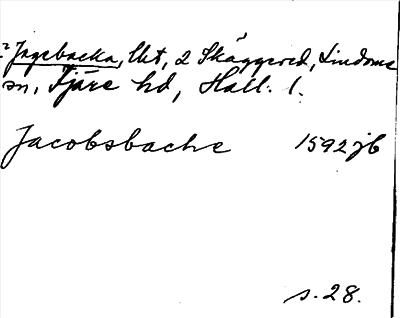 Jagebacka, lht, 2 Skäggered, Lindome
sn, Fjäre hd, Hall. l.
Jacobsbache 1592 jb
s. 28.